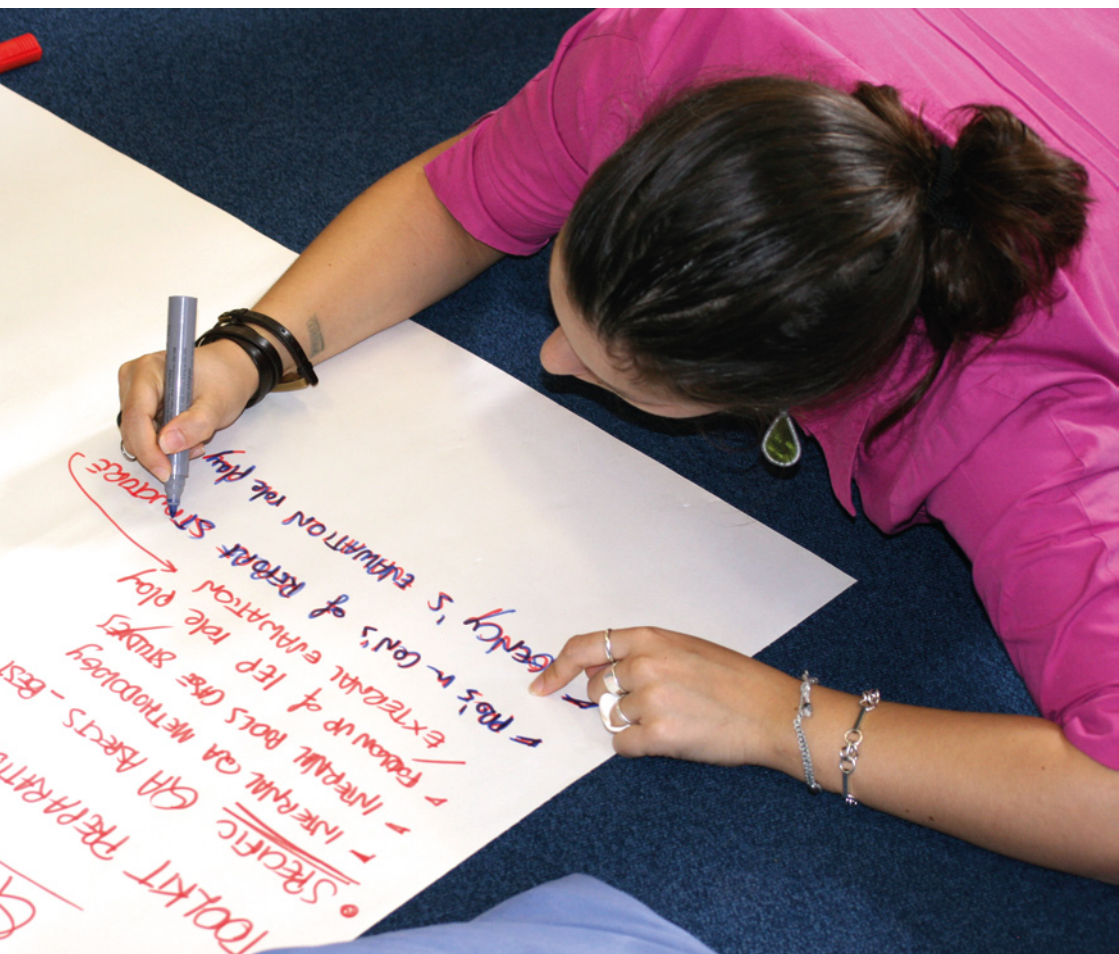 TOOLKIT
• SPECIFIC QA ASPECTS - BEST
- INTERNAL QA METHODOLOGY
- INTERNAL TOOLS CASE STUDIES
- FOLLOW UP of IEP role play
EXTERNAL EVALUATION
- PRO's n CON's of REPORT STRUCTURE
- AGENCY's EVALUATION role play